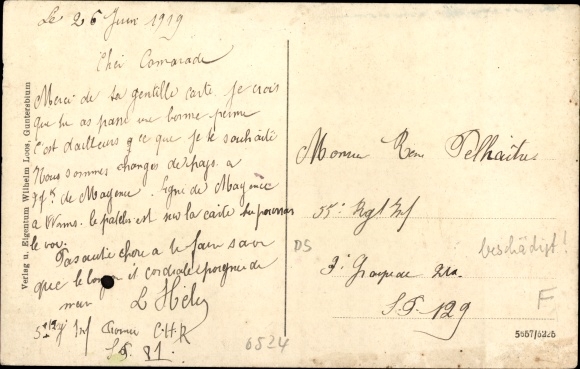 Le 26 Juin 1919
Cher Camarade
Merci de ta gentille carte je crois
que tu as passé une bonne perme
c'est d'ailleurs ce que je te souhaite
Nous sommes changes de pays. a
de Mayence. ligne de Mayence
a Worms. le patelin est sur la carte tu pourras
le voir.
Pas autre chose a te faire savoir
que le bonjour et cordiale poignée de
main
L Hély
Inf C.H.R
S.P. 81.
Verlag u. Eigentum Wilhelm Loos, Guntersblum
Monsieur René Pelhaitre
Rgt Inf
DS
beschädigt!
S.P. 129
F
6524
5557/6225